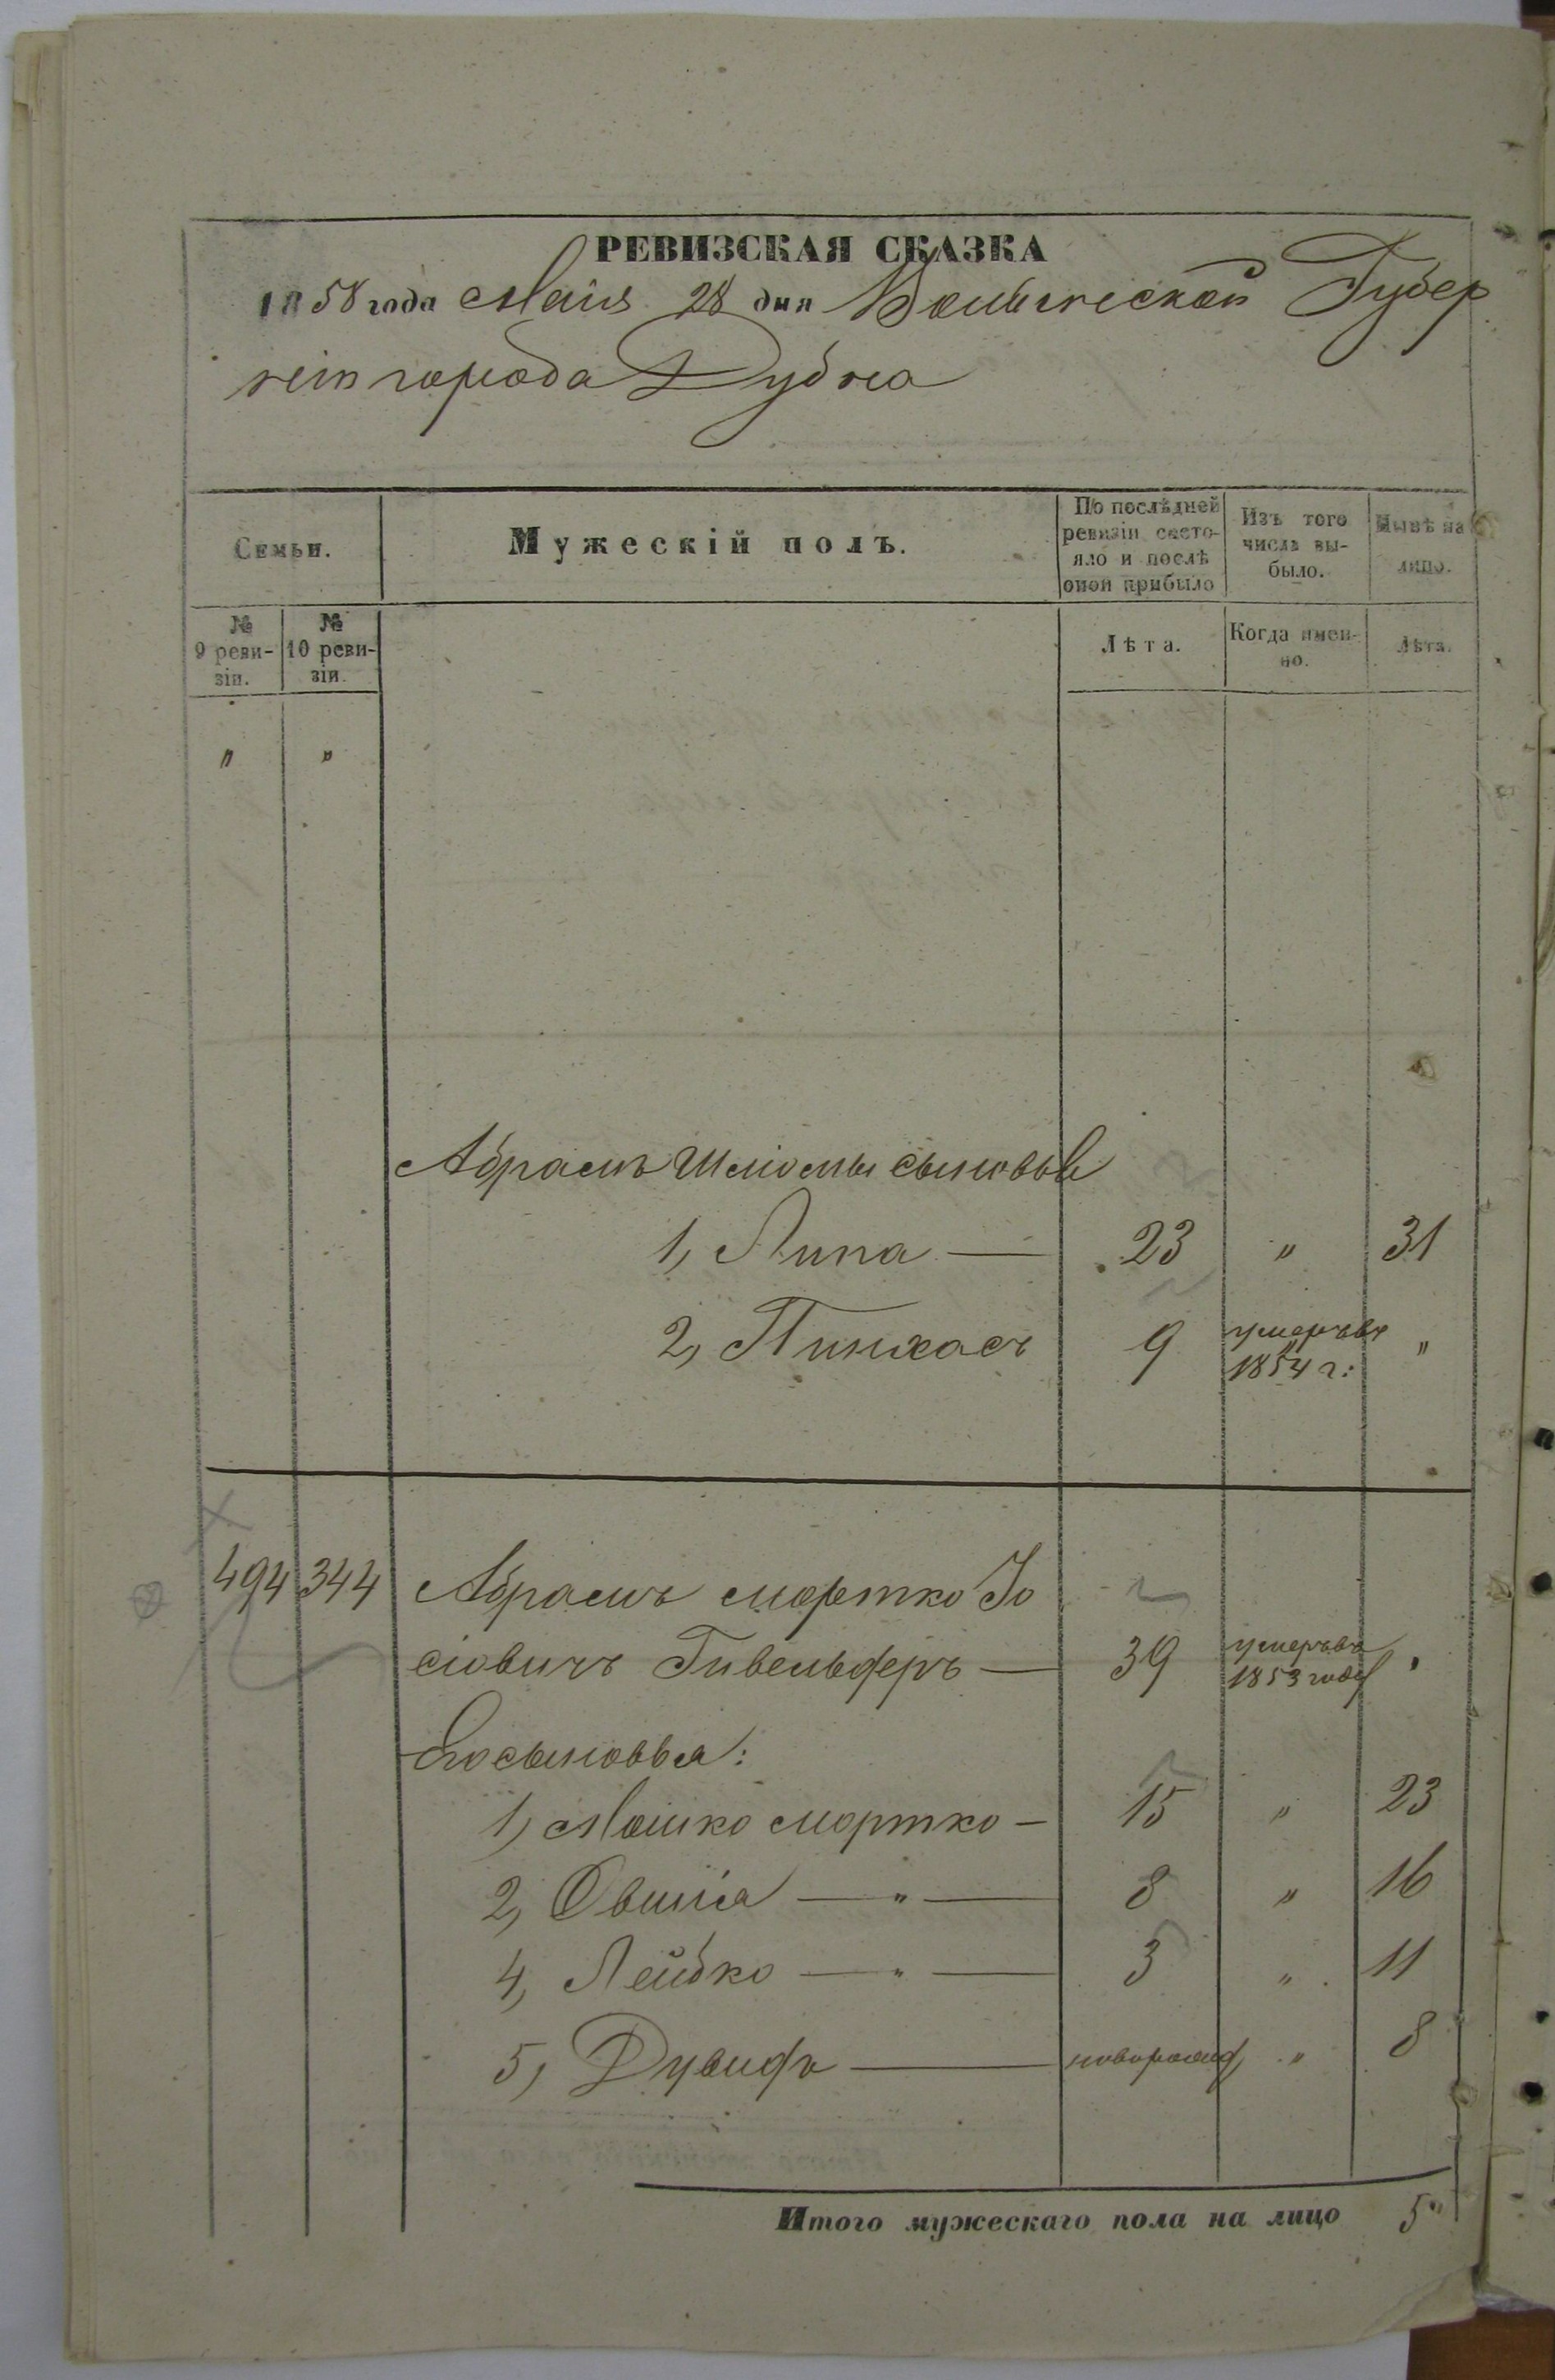 РЕВИЗСКАЯ СКАЗКА
1858 года Маія 28 дня Волынской Губер
ніи города Дубна
Семьи.
Мужескій полъ.
По послѣдней
ревизіи состо-
яло и послѣ
оной прибыло
Изъ того
числа вы-
было.
Нынѣ на
лицо.
№
9 реви-
зіи.
№
10 реви-
зіи.
Лѣта.
Когда имен-
но.
Лѣта.
" "
Абрамъ Шліомы сыновья
1, Липа — 23 " 31
2, Пинхасъ 9 умеръ въ 1854 г: "
494 344 Абрамъ Мортко Іо
сіовичъ Гивельдеръ — 39 умеръ въ 1853 году "
Его сыновья:
1, Мошко Мортко — 15 " 23
2, Овшія — " — 8 " 16
4, Лейбко — " — 3 " 11
5, Дувидъ — новорожд " 8
Итого мужескаго пола на лицо 5"